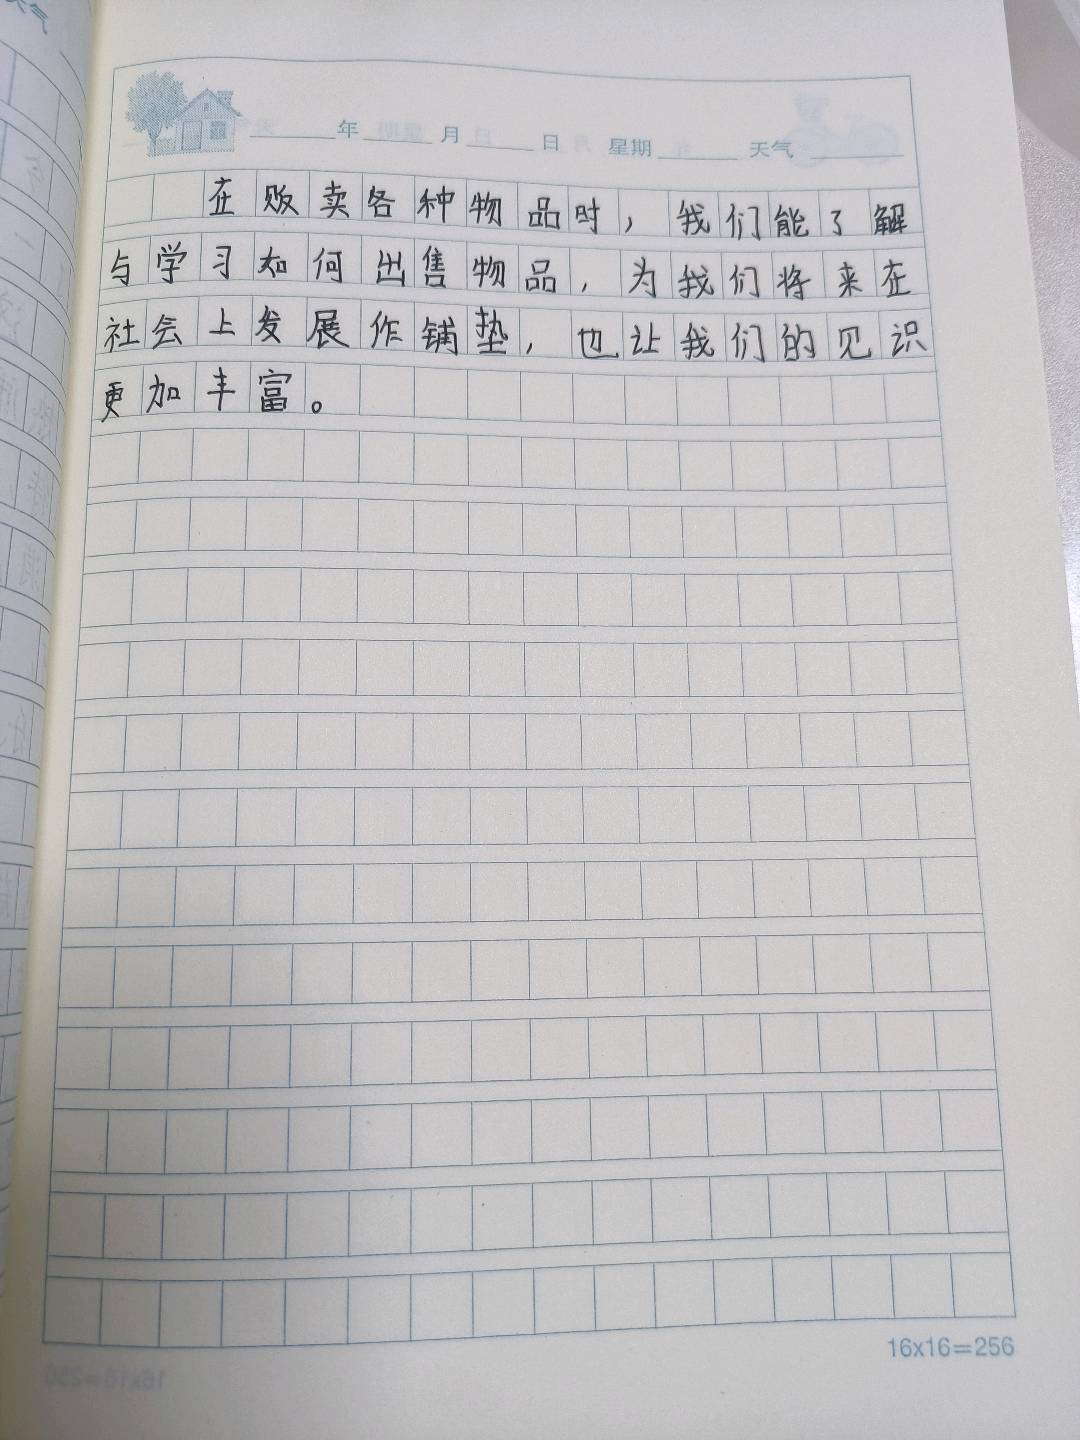 年 月 日 星期 天气
在贩卖各种物品时，我们能了解
与学习如何出售物品，为我们将来在
社会上发展作铺垫，也让我们的见识
更加丰富。
16x16=256